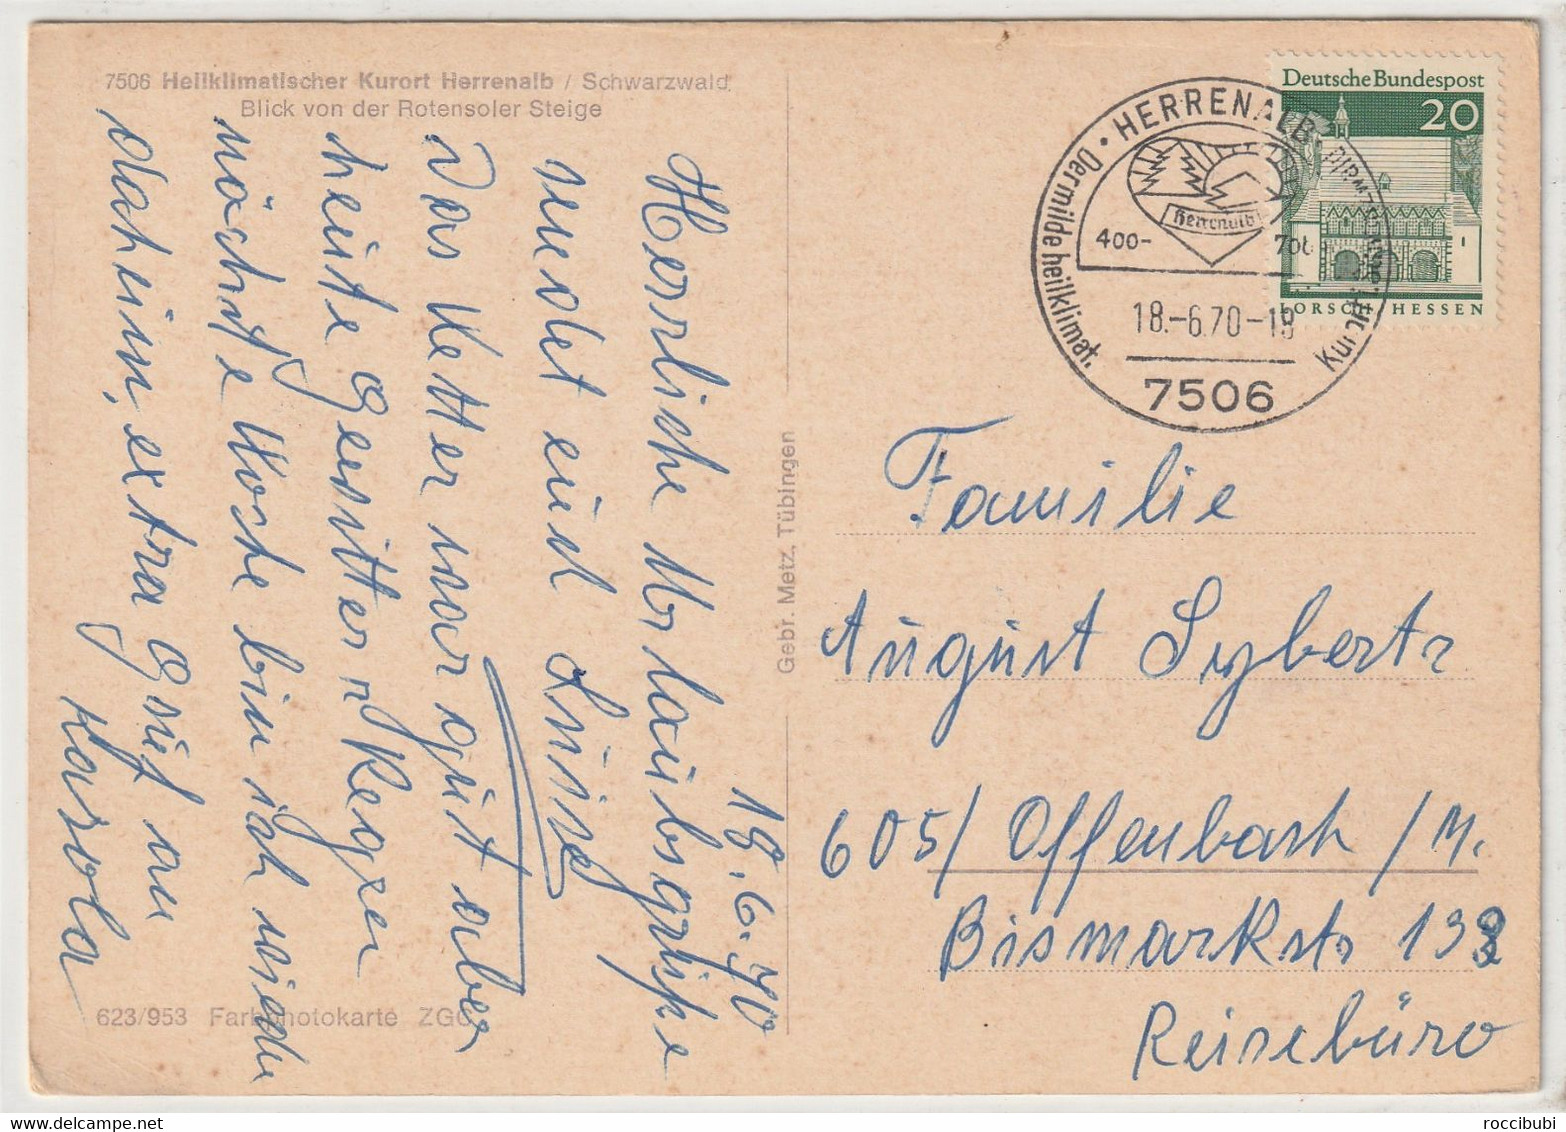 7506 Heilklimatischer Kurort Herrenalb / Schwarzwald
Blick von der Rotensoler Steige
18.6.70
Herrliche Urlaubsgrüße
sendet euch Luise
Das Wetter war gut aber
heute Gewitter n Regen
nächste Woche bin ich wieder
daheim, extra Gruß an
Karola
623/953 Farbphotokarte ZGC
Gebr. Metz, Tübingen
Deutsche Bundespost
20
LORSCH HESSEN
HERRENALB
Der milde heilklimat.
Kur
Herrenalb
400-
700
18.-6.70-19
7506
Familie
August Sybertz
605/ Offenbach /M.
Bismarkstr 133
Reisebüro
roccibubi